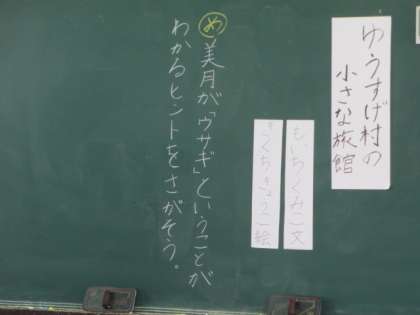 ゆうすげ村の
小さな旅館
もいちくみこ 文
きくちきょうこ 絵
め 美月が「ウサギ」ということが
わかるヒントをさがそう。